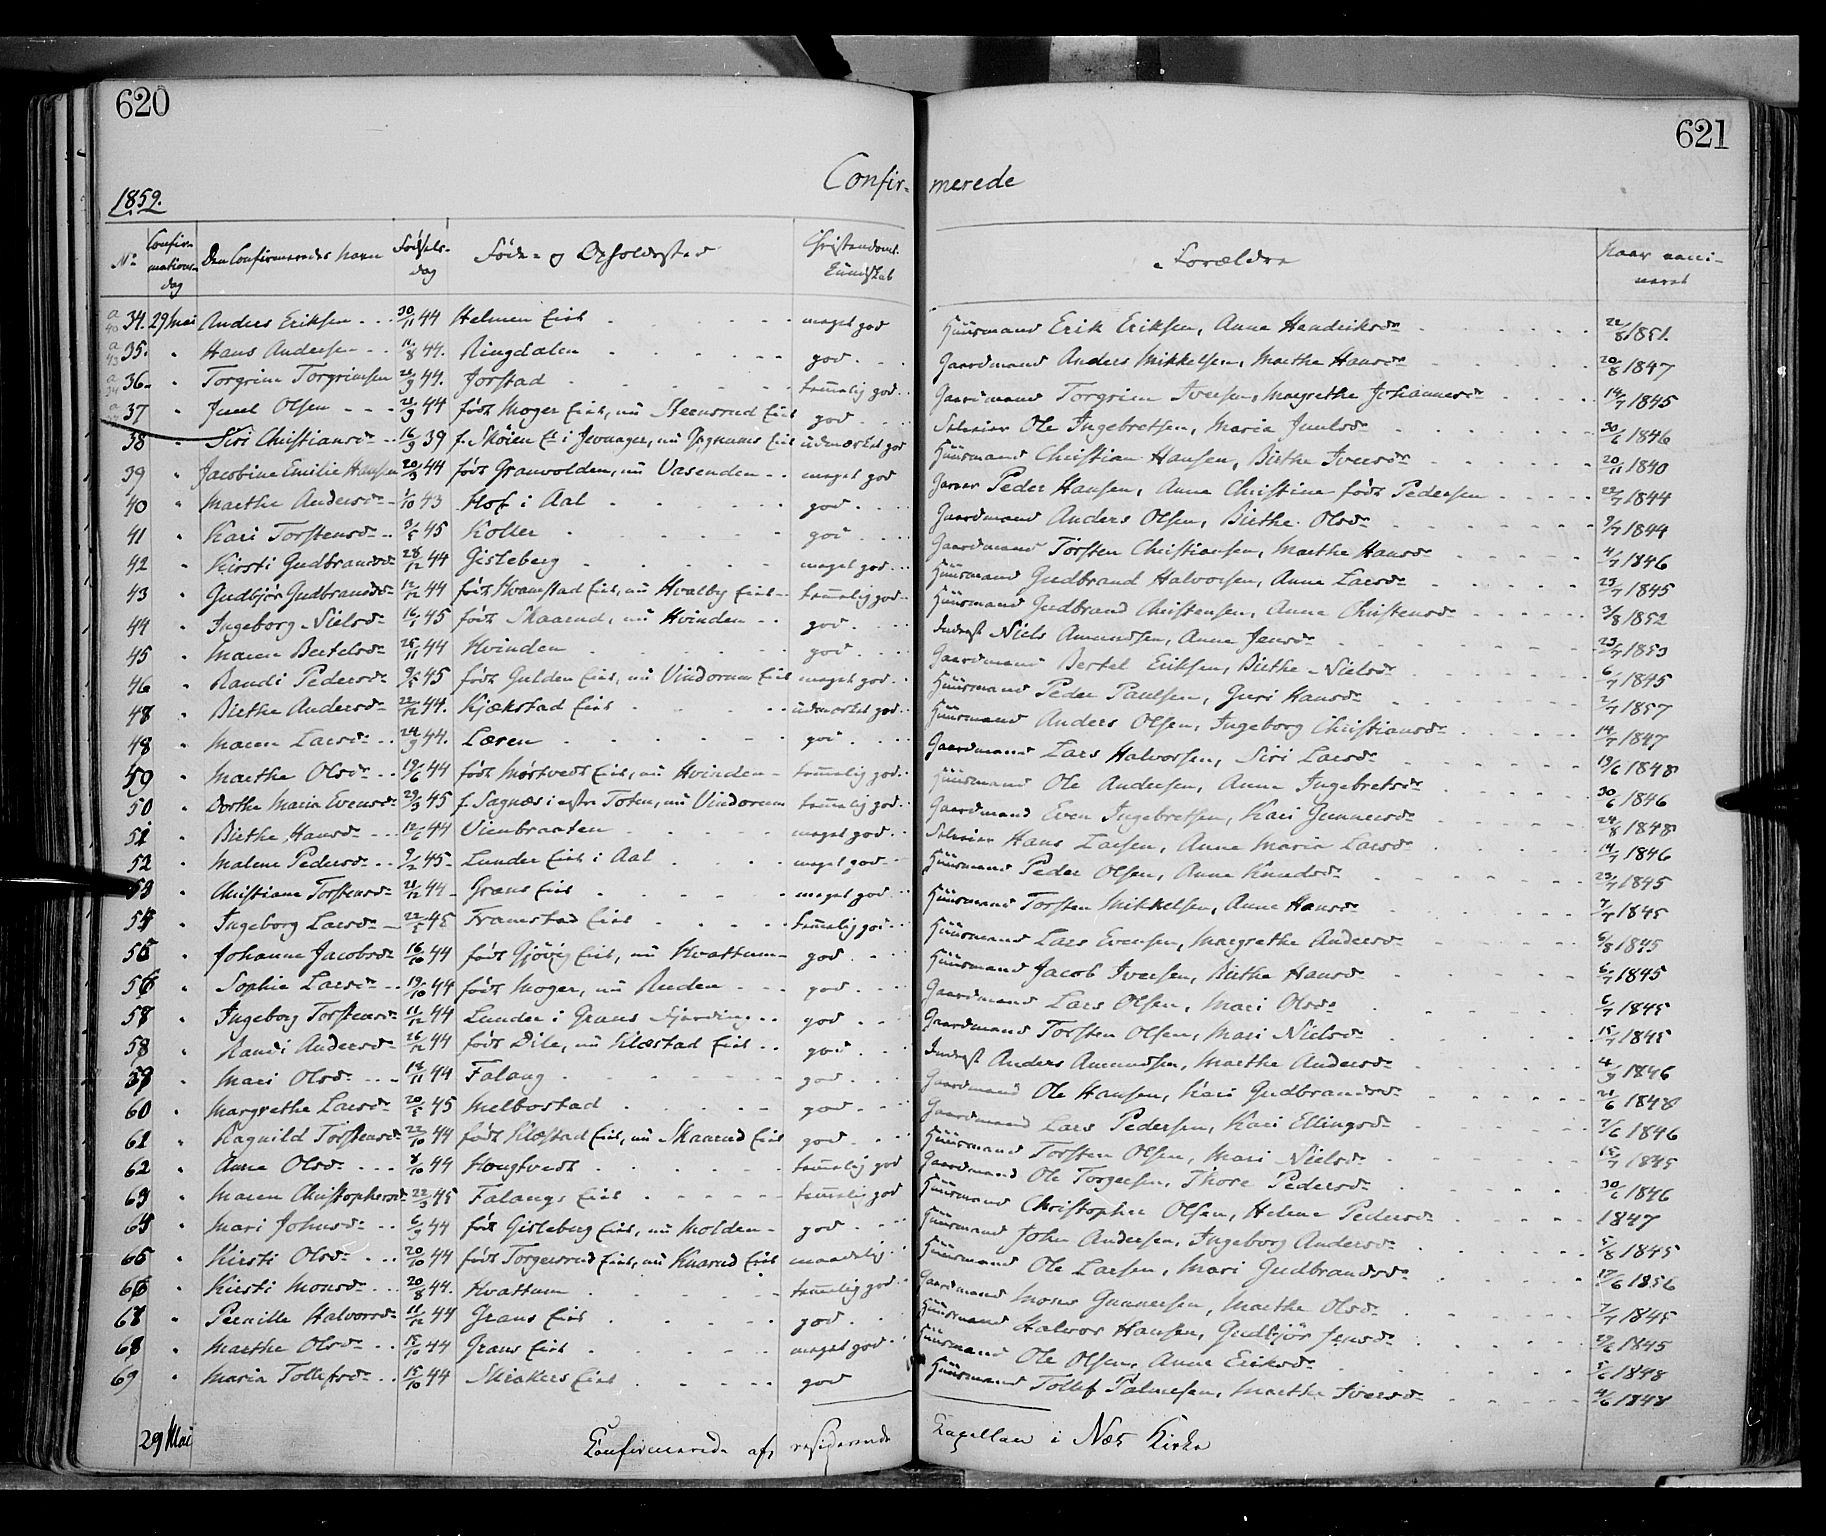 620
621
Confir- merede
1859.
No Confir-mations-dag Den Confirmeredes Navn Fødsels-dag Føde- og Opholdssted Christendoms-Kundskab Forældre Naar vacci-neret
34. 29 Mai Anders Eriksen 30/11 44 Helmen Eiet meget god Huusmand Erik Eriksen, Anne Hendriksdr 22/8 1851.
35. " Hans Andersen 11/8 44. Ringdalen god Gaardmand Anders Mikkelsen, Marthe Hansdr 20/8 1847
36. " Torgrim Torgrimsen 44. Jorstad temmelig god Gaardmand Torgrim Iversen, Margrethe Johannesdr 14/7 1845
37 " Juul Olsen 44 født Moger Eiet, nu Steensrud Eiet god Ole Ingebretsen, Maria Juulsdr 30/6 1846
38 " Siri Christiansdr 16/9 39 f. Skøien Et i Jevnager, nu Eiet udmærket god Huusmand Christian Hansen, Birthe Iversdr 20/11 1840
39 " Jacobine Emilie Hansen 20/3 44 født Granvolden, nu Vasenden meget god Peder Hansen, Anne Christine født Pedersen 22/7 1844
40 " Marthe Andersdr 43 Hof i Aal god Gaardmand Anders Olsen, Birthe Olsdr 9/7 1844
41 " Kari Torstensdr 45 Koller god Gaardmand Torsten Christiansen, Marthe Hansdr 4/7 1846
42 " Kirsti Gudbrandsdr 28/12 44 Gisleberg meget god Huusmand Gudbrand Halvorsen, Anne Larsdr 23/7 1845
43 " Gudbjør Gudbrandsdr 12/12 44 født Hvamstad Eiet, nu Hvalby Eiet temmelig god Huusmand Gudbrand Christensen, Anne Christensdr 3/8 1852
44 " Ingeborg Nielsdr 16/1 45 født Skaarud, nu Hvinden god Inderst Niels Amundsen, Anne Jensdr 1853
45 " Maren Bertelsdr 25/11 44 Hvinden god Gaardmand Bertel Eriksen, Birthe Nielsdr 6/7 1845
46 " Randi Pedersdr 45 født Gulden Eiet, nu Vindorum Eiet meget god Huusmand Peder Paulsen, Guri Hansdr 2/7 1857
48 " Birthe Andersdr 22/12 44. Kjækstad Eiet udmærket god Huusmand Anders Olsen, Ingeborg Christiansdr 14/7 1847
48 " Maren Larsdr 24/9 44. Læren god Gaardmand Lars Halvorsen, Siri Larsdr 19/6 1848
59 " Marthe Olsdr 19/6 44 født Mørtvedt Eiet, nu Hvinden temmelig god Huusmand Ole Andersen, Anne Ingebretsdr 30/6 1846
50 " Dorthe Maria Evensdr 29/3 45 f. Sagnæs i østre Toten, nu Vindorum temmelig god Gaardmand Even Ingebretsen, Kari Gunnersdr 24/8 1848
51 " Birthe Hansdr 12/6 44 Vienbraaten meget god Hans Larsen, Anne Maria Larsdr 14/7 1846
52 " Malene Pedersdr 9/2 45 Lunder Eiet i Aal meget god Huusmand Peder Olsen, Anne Knudsdr 23/7 1845
53 " Christiane Torstensdr 21/12 44 Grans Eiet meget god Huusmand Torsten Mikkelsen, Anne Hansdr 7/7 1845
54 " Ingeborg Larsdr 22/5 45 Framstad Eiet temmelig god Huusmand Lars Evensen, Margrethe Andersdr 1845
55 " Johanne Jacobsdr 16/10 44 født Gjøvig Eiet, nu Hvattum god Huusmand Jacob Iversen, Birthe Hansdr 6/7 1845
56 " Sophie Larsdr 19/10 44 født Moger, nu Ruden god Gaardmand Lars Olsen, Mari Olsdr 6/7 1845
57 " Ingeborg Torstensdr 11/12 44 Lunder i Grans Fjerding god Gaardmand Torsten Olsen, Mari Nielsdr 15/7 1845
58 " Randi Andersdr 26/12 44 født Dile, nu Klæstad Eiet god Inderst Anders Amundsen, Marthe Andersdr 4/9 1846
59 " Mari Olsdr 14/11 44 Falang god Gaardmand Ole Hansen, Kari Gudbrandsdr 21/6 1848
60 " Margrethe Larsdr 20/5 45 Melbostad god Gaardmand Lars Pedersen, Kari Ellingsdr 7/6 1846
61 " Ragnild Torstensdr 22/10 44 født Klæstad Eiet, nu Skaarud Eiet god Huusmand Torsten Olsen, Mari Nielsdr 15/7 1845
62 " Anne Olsdr 8/10 44 Hougtvedt temmelig god Gaardmand Ole Torgersen, Thore Pedersdr 30/6 1846
63 " Maren Christophersdr 22/3 45 Falangs Eiet temmelig god Huusmand Christopher Olsen, Helene Pedersdr 1847
64 " Mari Johnsdr 6/9 44 født Gisleberg Eiet, nu Molden god Huusmand John Andersen, Ingeborg Andersdr 5/8 1845
65 " Kirsti Olsdr 20/10 44 født Torgersrud Eiet, nu Knarud Eiet maadelig Huusmand Ole Larsen, Mari Gudbrandsdr 17/6 1856
66 " Kirsti Monsdr 20/8 44. Hvattum temmelig god Gaardmand Mons Gunnersen, Marthe Olsdr 7/7 1845
68 " Pernille Halvorsdr 11/12 44 Grans Eiet god Huusmand Halvor Hansen, Gudbjør Jensdr 1845
68 " Marthe Olsdr 44 Grans Eiet meget god Huusmand Ole Olsen, Anne Eriksdr 1848
69 " Maria Tollefsdr 15/10 44 Skiakers Eiet god Huusmand Tollef Palmesen, Marthe Iversdr 4/6 1848
29 Mai Confirmerede af residerende Kapellan i Næs Kirke